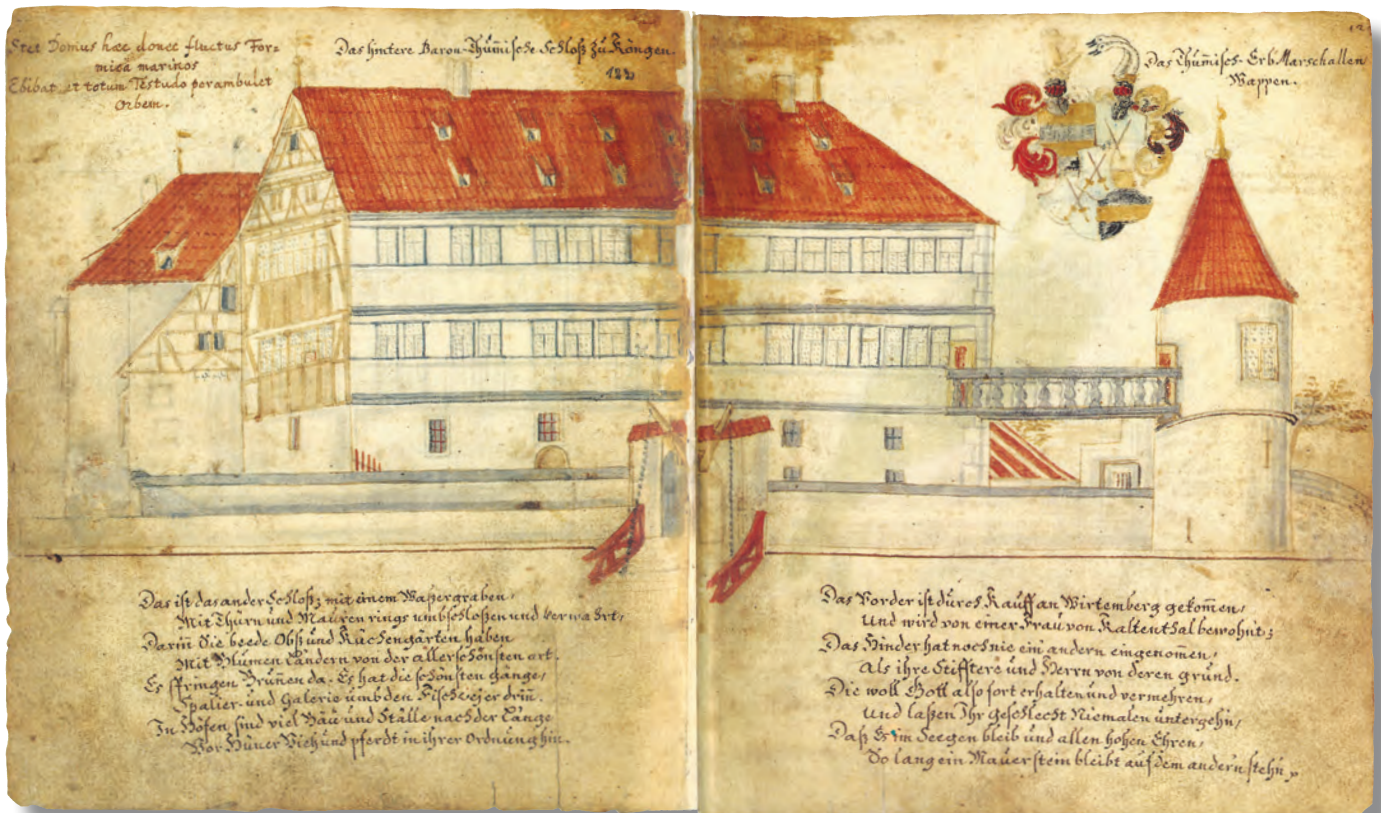 Stet Domus hæc donec fluctus For=
mica marinos
Ebibat et totum Testudo perambulet
Orbem.
Das hintere Baron-Thum̄ische Schloß zu Köngen.
12.
Das Thum̄isch-ErbMarschallen
Wappen.
Das ist das ander Schloß; mit einem Waßergraben,
Mit Thürn und Mauren rings umbschloßen und verwahrt,
Darin̄ Sie beede Obs und Kuchengärten haben
Mit Blumen Ländern von der allerschönsten art.
Es springen Brün̄en da. Es hat die schönsten gänge,
Spalier und Galerie umb den Fischweyer drin̄.
In Höfen sind viel Bäu und Ställe nach der Länge
Vor Hüner Vieh und pferdt in ihrer Ordnung hin.
Das Vorder ist durch Kauff an Wirtemberg gekom̄en,
Und wird von einer Frau von Kaltenthal bewohnt;
Das Hinder hat noch nie ein andern eingenom̄en,
Als ihre Stifftere und Herrn von deren grund.
Die woll Gott also fort erhalten und vermehren,
Und laßen Ihr geschlecht Niemalen untergehn,
Daß Es im Seegen bleib und allen hohen Ehren,
So lang ein Mauerstein bleibt auf dem andern stehn